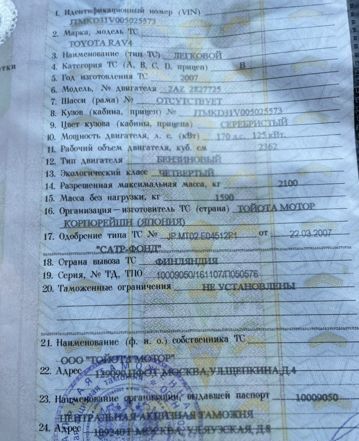 1. Идентификационный номер (VIN)
JTMKD31V005025573
2. Марка, модель ТС
TOYOTA RAV4
3. Наименование (тип ТС) ЛЕГКОВОЙ
4. Категория ТС (A, B, C, D, прицеп) B
5. Год изготовления ТС 2007
6. Модель, № двигателя 2AZ 2827725
7. Шасси (рама) № ОТСУТСТВУЕТ
8. Кузов (кабина, прицеп) № JTMKD31V005025573
9. Цвет кузова (кабины, прицепа) СЕРЕБРИСТЫЙ
10. Мощность двигателя, л. с. (кВт) 170 л.с., 125 кВт.
11. Рабочий объем двигателя, куб. см 2362
12. Тип двигателя БЕНЗИНОВЫЙ
13. Экологический класс ЧЕТВЕРТЫЙ
14. Разрешенная максимальная масса, кг 2100
15. Масса без нагрузки, кг 1590
16. Организация—изготовитель ТС (страна) ТОЙОТА МОТОР
КОРПОРЕЙШН (ЯПОНИЯ)
17. Одобрение типа ТС № JP.MT02.E04512P1 от 22.03.2007
"САТР-ФОНД"
18. Страна вывоза ТС ФИНЛЯНДИЯ
19. Серия, № ТД, ТПО 10009050/161107/П050576
20. Таможенные ограничения НЕ УСТАНОВЛЕНЫ
21. Наименование (ф. и. о.) собственника ТС
ООО "ТОЙОТА МОТОР"
22. Адрес 129090 ЦФО Г.МОСКВА, УЛ.ЩЕПКИНА, Д.4
23. Наименование организации, выдавшей паспорт 10009050
ЦЕНТРАЛЬНАЯ АКЦИЗНАЯ ТАМОЖНЯ
24. Адрес МОСКВА, УЛ.ЯУЗСКАЯ, Д.8